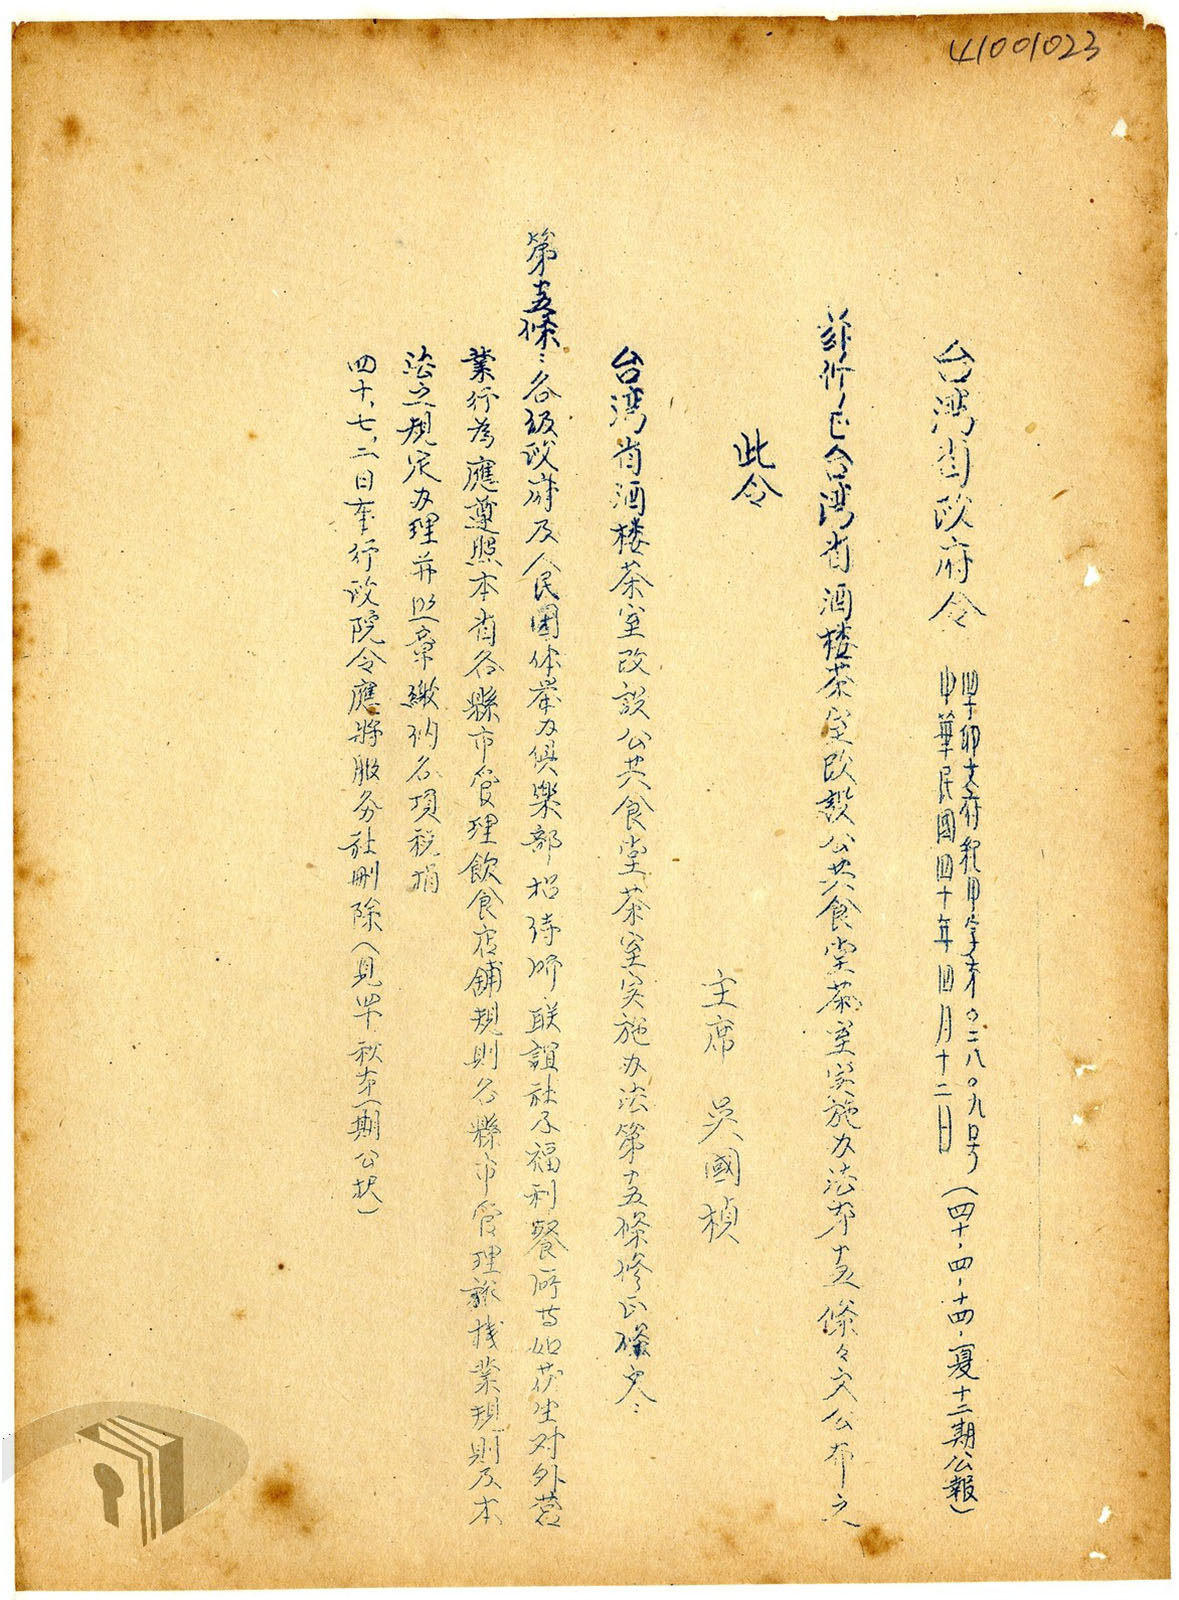 41001023
台湾省政府令
四十卯文府綜甲字第〇二八〇九号
中華民國四十年四月十二日
(四十、四、十四、夏十二期公報)
茲修正台湾省酒楼茶室改設公共食堂茶室实施办法第十五條々文公布之
此令
主席 吳國楨
台湾省酒楼茶室改設公共食堂茶室实施办法第十五條修正條文:
第十五條:各級政府及人民團体举办俱樂部招待所联誼社及福利餐所等如发生对外营
業行為應遵照本省各縣市管理飲食店舖規則各縣市管理旅棧業規則及本
法之規定办理并照章繳納各項稅捐
四十、七、二日奉行政院令應將服务社刪除(見四十秋第一期公报)